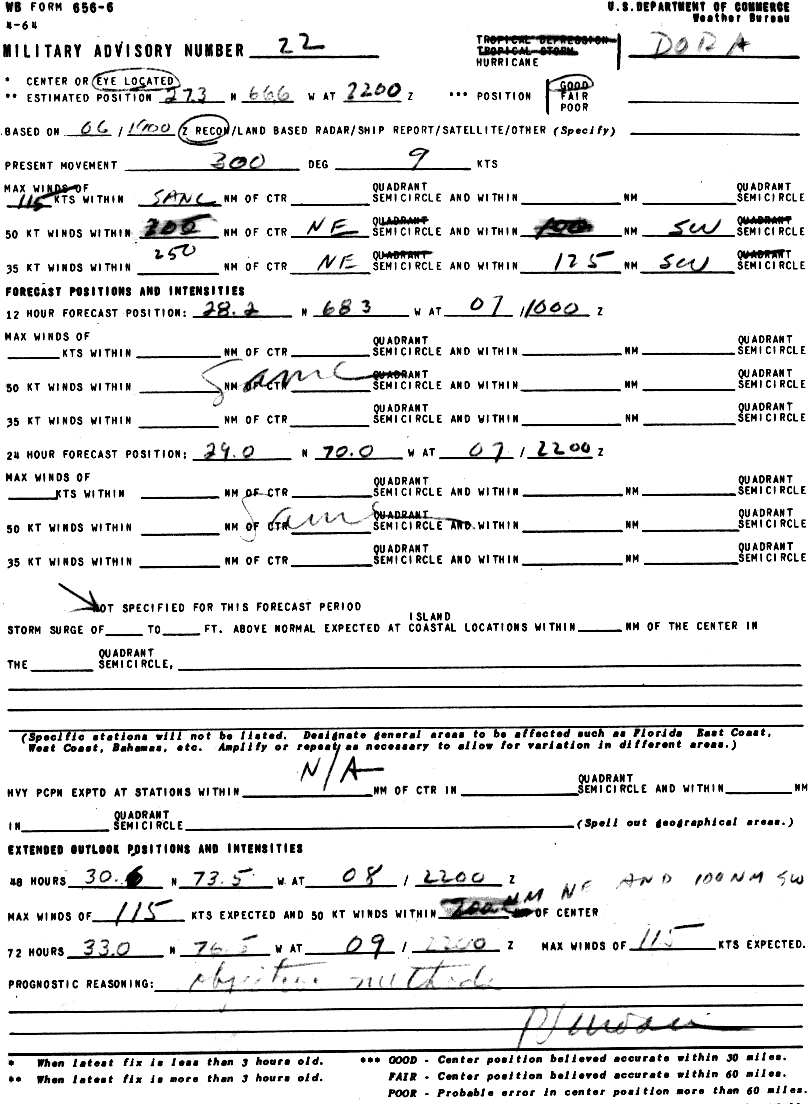 WB FORM 656-6 U.S. DEPARTMENT OF COMMERCE
4-64 Weather Bureau
MILITARY ADVISORY NUMBER 22 TROPICAL DEPRESSION DORA
TROPICAL STORM
HURRICANE
* CENTER OR EYE LOCATED
** ESTIMATED POSITION 27.3 N 66.6 W AT 2200 Z *** POSITION GOOD
FAIR
POOR
BASED ON 06 / 1900 Z RECON/LAND BASED RADAR/SHIP REPORT/SATELLITE/OTHER (Specify)
PRESENT MOVEMENT 300 DEG 9 KTS
MAX WINDS OF QUADRANT QUADRANT
115 KTS WITHIN NM OF CTR SEMICIRCLE AND WITHIN NM SEMICIRCLE
QUADRANT QUADRANT
50 KT WINDS WITHIN NM OF CTR NE SEMICIRCLE AND WITHIN 100 NM SW SEMICIRCLE
250 QUADRANT QUADRANT
35 KT WINDS WITHIN NM OF CTR NE SEMICIRCLE AND WITHIN 125 NM SW SEMICIRCLE
FORECAST POSITIONS AND INTENSITIES
12 HOUR FORECAST POSITION: 28.2 N 68.3 W AT 07 /1000 Z
MAX WINDS OF QUADRANT QUADRANT
KTS WITHIN NM OF CTR SEMICIRCLE AND WITHIN NM SEMICIRCLE
Same QUADRANT QUADRANT
50 KT WINDS WITHIN NM OF CTR SEMICIRCLE AND WITHIN NM SEMICIRCLE
QUADRANT QUADRANT
35 KT WINDS WITHIN NM OF CTR SEMICIRCLE AND WITHIN NM SEMICIRCLE
24 HOUR FORECAST POSITION: 29.0 N 70.0 W AT 07 / 2200 Z
MAX WINDS OF QUADRANT QUADRANT
KTS WITHIN NM OF CTR SEMICIRCLE AND WITHIN NM SEMICIRCLE
Same QUADRANT QUADRANT
50 KT WINDS WITHIN NM OF CTR SEMICIRCLE AND WITHIN NM SEMICIRCLE
QUADRANT QUADRANT
35 KT WINDS WITHIN NM OF CTR SEMICIRCLE AND WITHIN NM SEMICIRCLE
NOT SPECIFIED FOR THIS FORECAST PERIOD
ISLAND
STORM SURGE OF TO FT. ABOVE NORMAL EXPECTED AT COASTAL LOCATIONS WITHIN NM OF THE CENTER IN
QUADRANT
THE SEMICIRCLE,
(Specific stations will not be listed. Designate general areas to be affected such as Florida East Coast,
West Coast, Bahamas, etc. Amplify or repeat as necessary to allow for variation in different areas.)
N/A QUADRANT
HVY PCPN EXPTD AT STATIONS WITHIN NM OF CTR IN SEMICIRCLE AND WITHIN NM
QUADRANT
IN SEMICIRCLE (Spell out geographical areas.)
EXTENDED OUTLOOK POSITIONS AND INTENSITIES
48 HOURS 30.6 N 73.5 W AT 08 / 2200 Z
NM NE AND 100 NM SW
MAX WINDS OF 115 KTS EXPECTED AND 50 KT WINDS WITHIN 200 OF CENTER
72 HOURS 33.0 N 76.5 W AT 09 / 2200 Z MAX WINDS OF 115 KTS EXPECTED.
PROGNOSTIC REASONING: objective methods
* When latest fix is less than 3 hours old. *** GOOD - Center position believed accurate within 30 miles.
** When latest fix is more than 3 hours old. FAIR - Center position believed accurate within 60 miles.
POOR - Probable error in center position more than 60 miles.